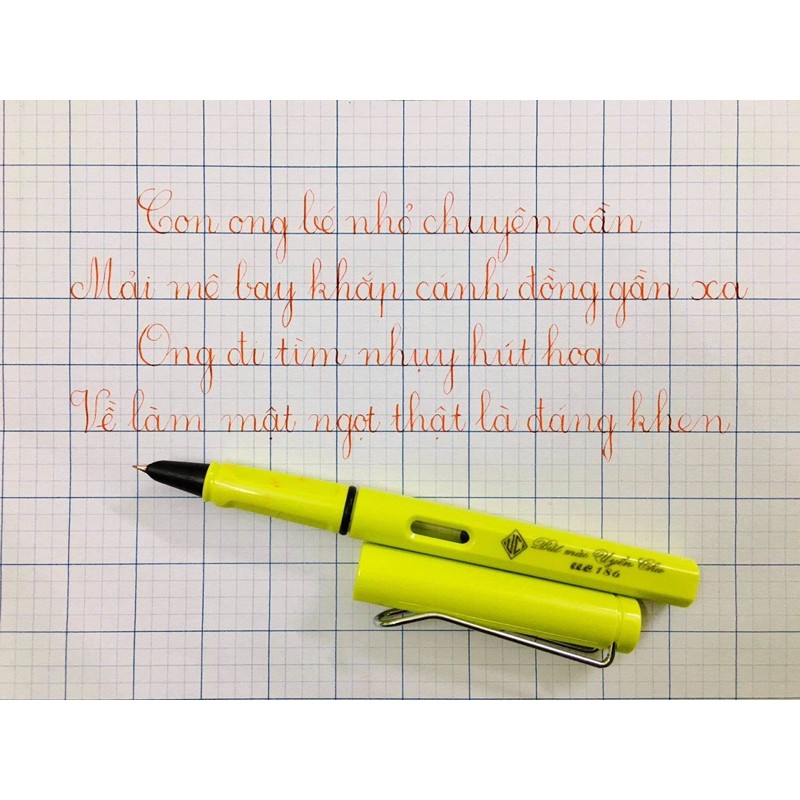 Con ong bé nhỏ chuyên cần
Mải mê bay khắp cánh đồng gần xa
Ong đi tìm nhụy hút hoa
Về làm mật ngọt thật là đáng khen
UC
Bút mài Uyên Chi
uc 186